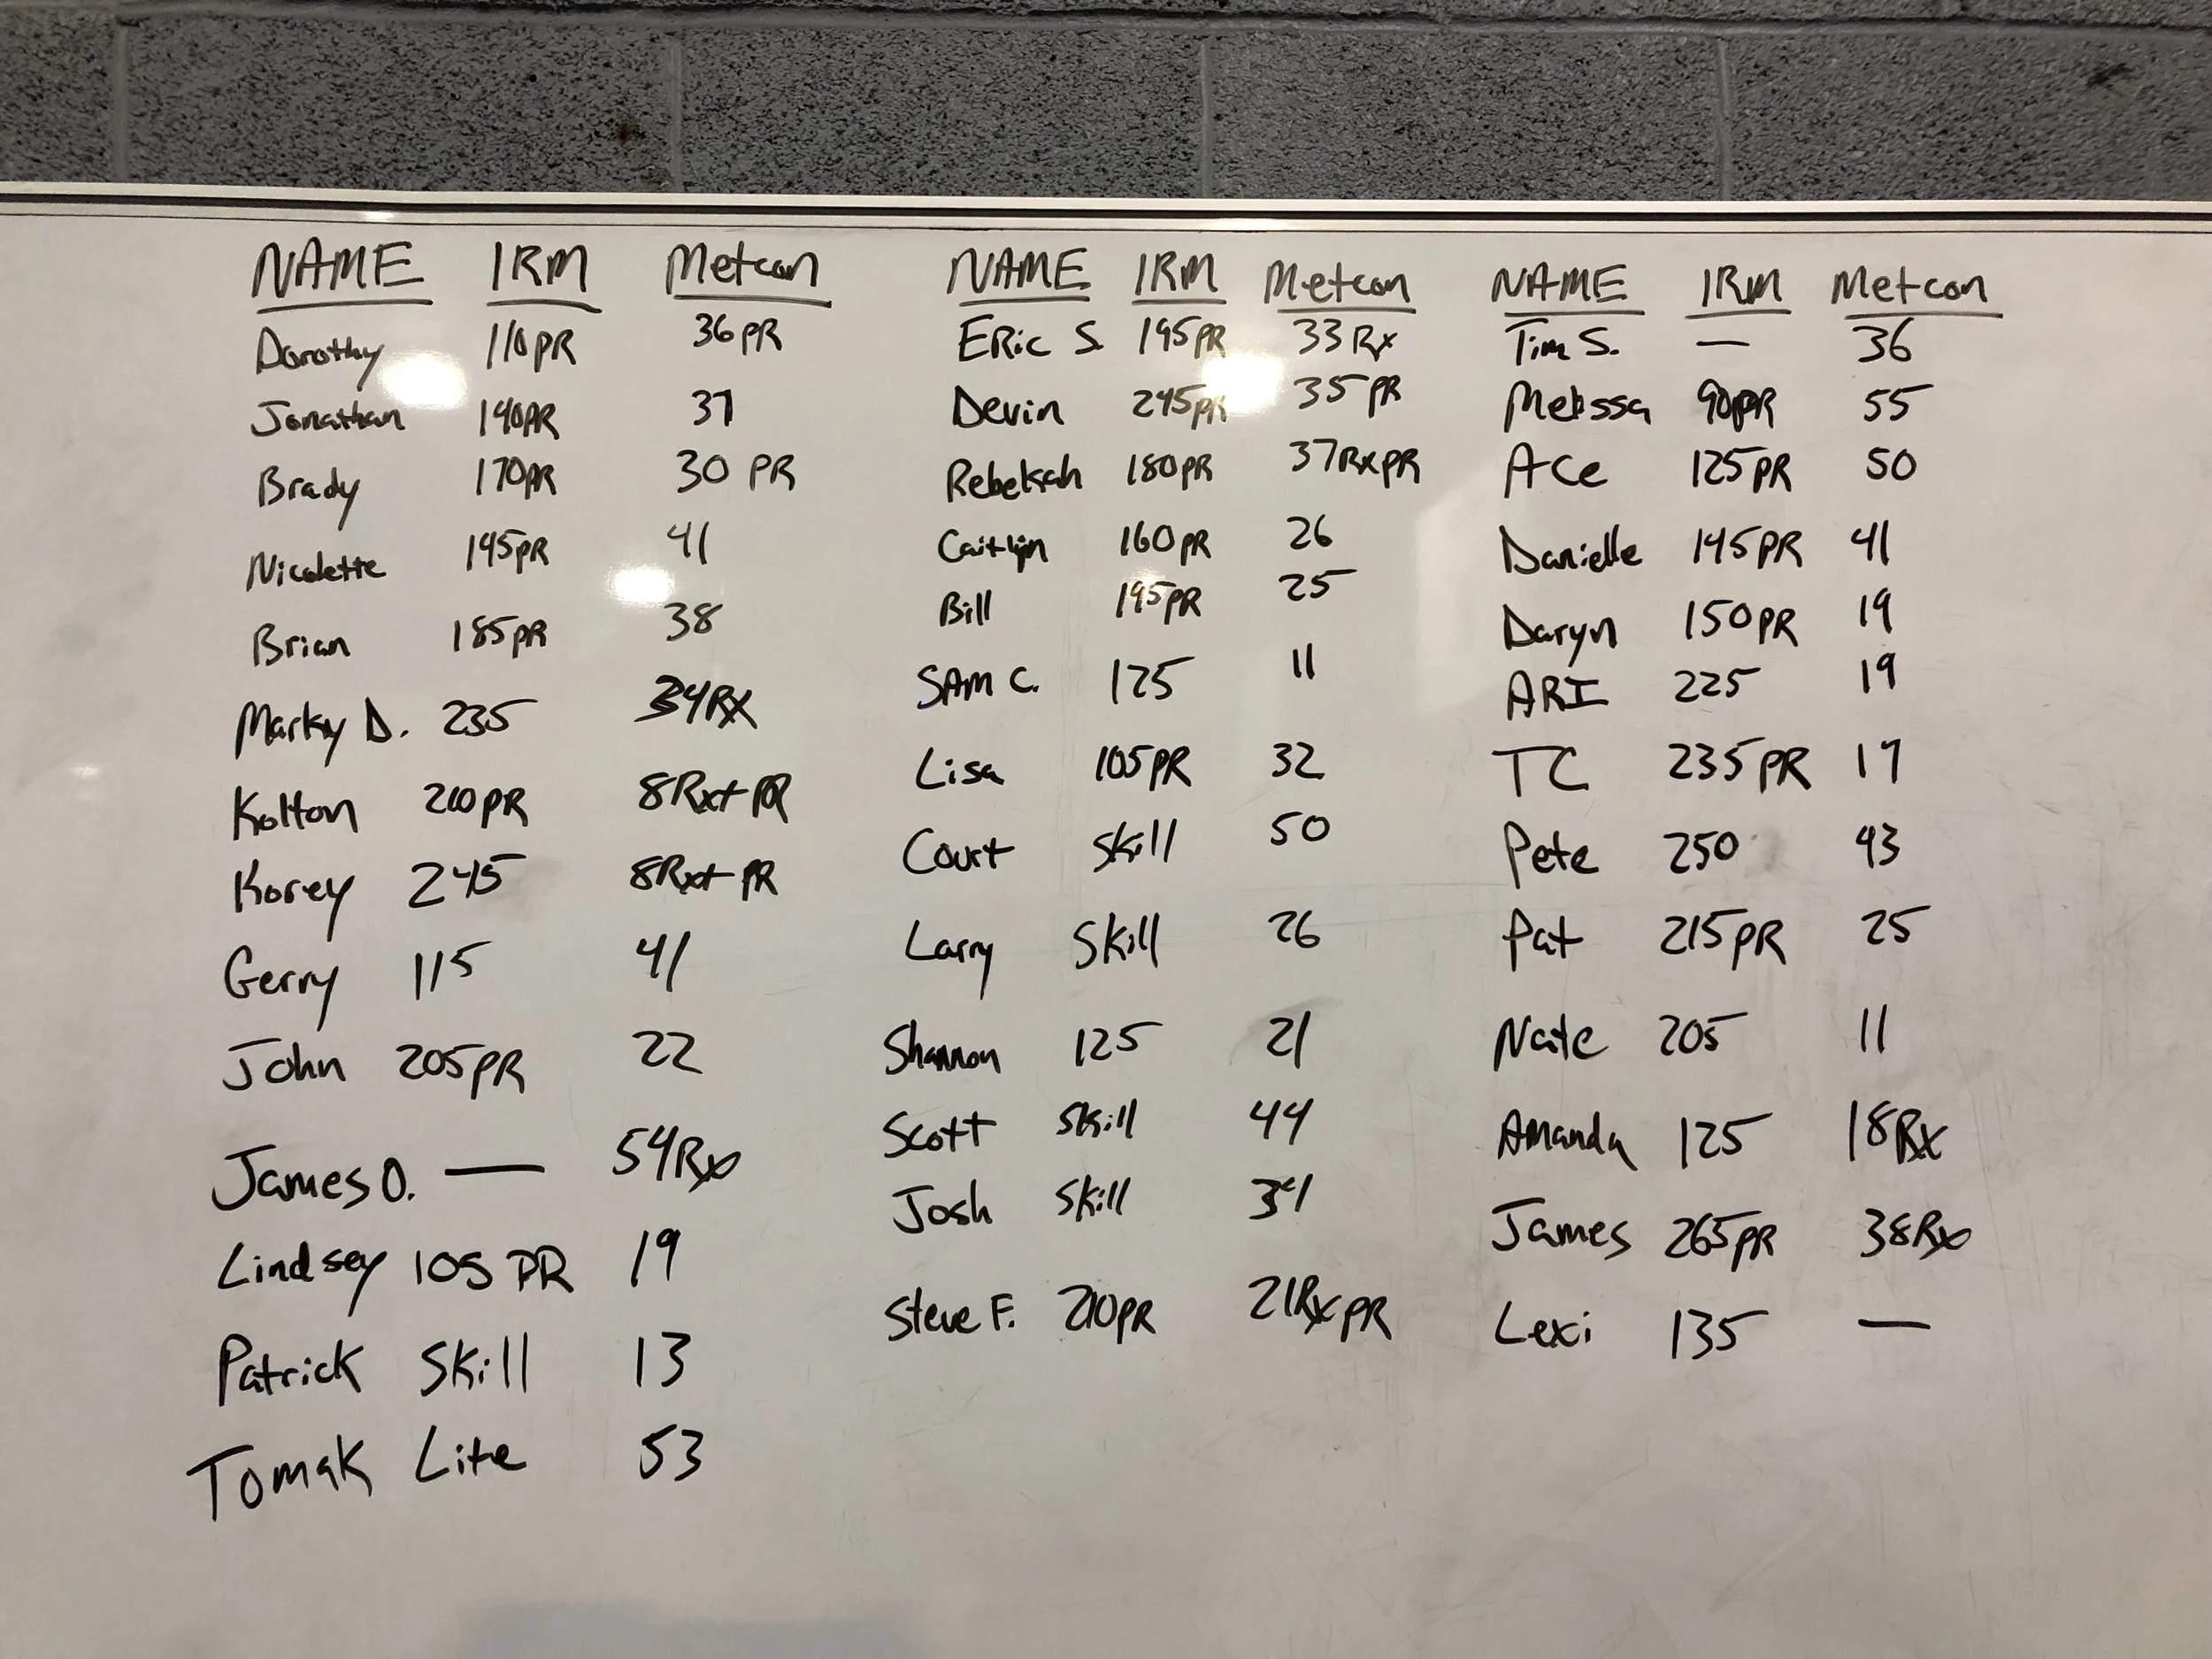 NAME 1RM Metcon
Dorothy 110PR 36PR
Jonathan 140PR 37
Brady 170PR 30 PR
Nicolette 145PR 41
Brian 185PR 38
Marky D. 235 34RX
Kolton 200PR 8Rx+ PR
Korey 245 8Rx+ PR
Gerry 115 41
John 205PR 22
James O. — 54Rx
Lindsey 105 PR 19
Patrick Skill 13
Tomak Lite 53
NAME 1RM Metcon
ERic S. 195PR 33Rx
Devin 245PR 35PR
Rebekah 180PR 37RxPR
Caitlyn 160PR 26
Bill 195PR 25
SAM C. 125 11
Lisa 105PR 32
Court Skill 50
Larry Skill 26
Shannon 125 21
Scott Skill 44
Josh Skill
Steve F. 210PR 21RxPR
NAME 1RM Metcon
Tim S. — 36
Melissa 90PR 55
Ace 125PR 50
Danielle 145PR 41
Daryn 150PR 19
ARI 225 19
TC 235PR 17
Pete 250 43
Pat 215PR 25
Nate 205 11
Amanda 125 18Rx
James 265PR 38Rx
Lexi 135 —